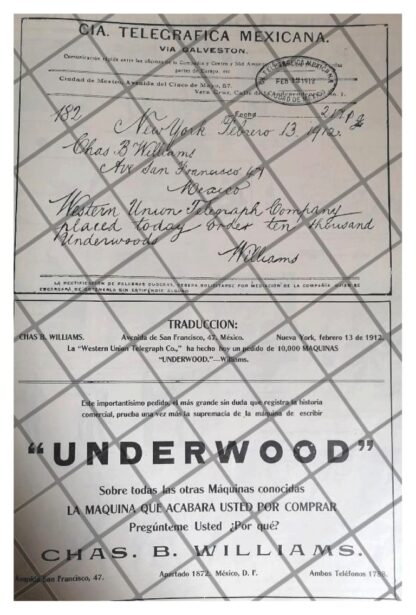 CIA. TELEGRAFICA MEXICANA.
VIA GALVESTON.
Comunicación rápida entre las oficinas de la Compañía y Centro y Sud América
partes de Europa, etc
Ciudad de Mexico, Avenida del Cinco de Mayo, 57.
Vera Cruz, Calle de
No. 1.
FEB 13 1912
CIUDAD DE MEXICO
182
Fecha
New York Febrero 13. 1912.
Chas B Williams
Ave San Francisco 47
Mexico
Western Union Telegraph Company
placed today order ten thousand
Underwoods
Williams
LA RECTIFICACION DE PALABRAS DUDOSAS, DEBERA SOLICITARSE POR MEDIACION DE LA COMPAÑIA QUIEN SE
ENCARGARA DE OBTENERLA SIN ESTIPENDIO ALGUNO
TRADUCCION:
CHAS B. WILLIAMS. Avenida de San Francisco, 47. México. Nueva York, febrero 13 de 1912.
La "Western Union Telegraph Co.," ha hecho hoy un pedido de 10,000 MAQUINAS
"UNDERWOOD."—Williams.
Este importantísimo pedido, el más grande sin duda que registra la historia
comercial, prueba una vez más la supremacía de la máquina de escribir
"UNDERWOOD"
Sobre todas las otras Máquinas conocidas
LA MAQUINA QUE ACABARA USTED POR COMPRAR
Pregúnteme Usted ¿Por qué?
CHAS. B. WILLIAMS.
Avenida San Francisco, 47. Apartado 1872. México, D. F. Ambos Teléfonos 1788.